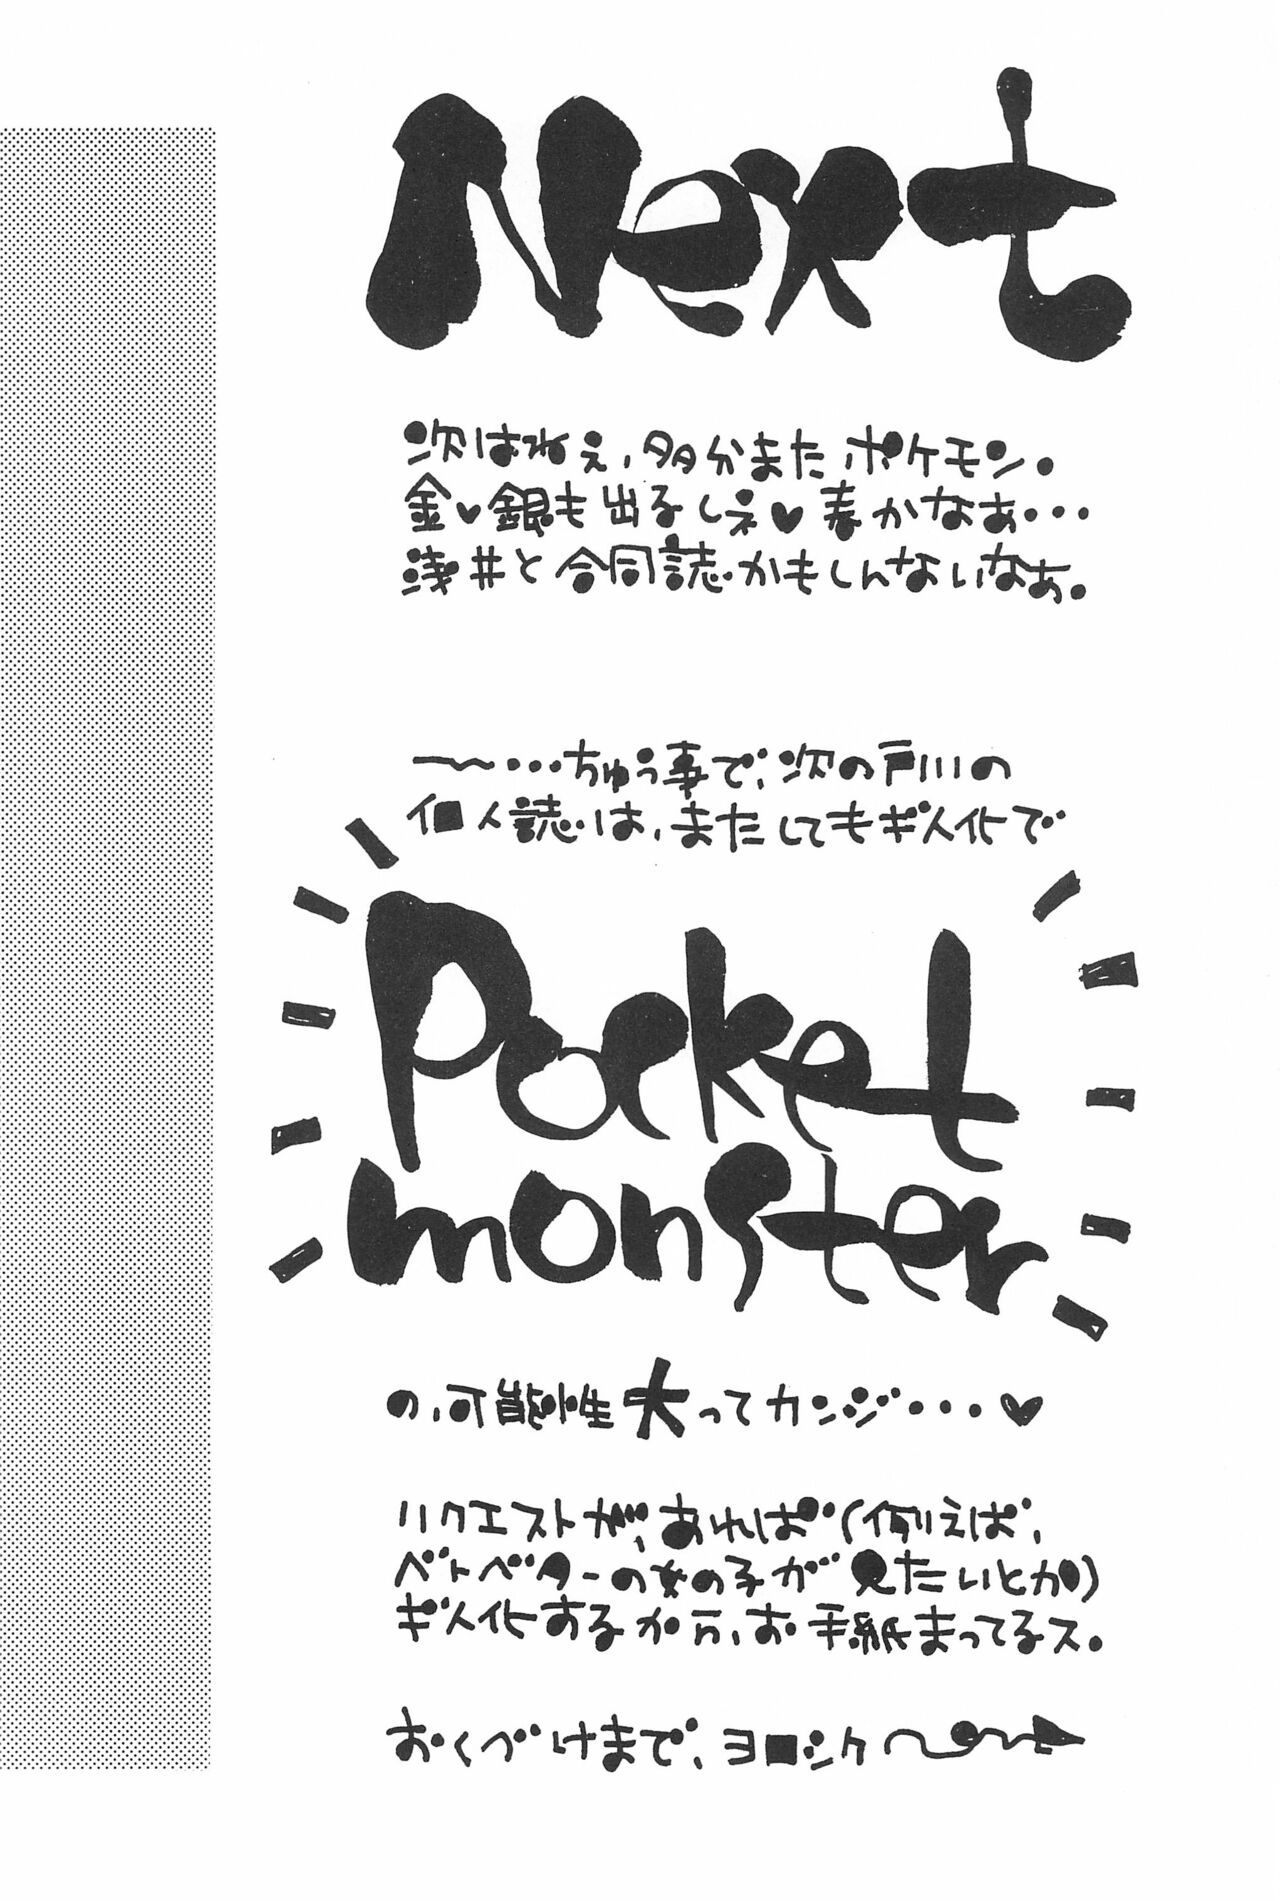 Next
次はねぇ、多分またポケモン。
金♥銀も出るしネ♥春かなぁ・・・
浅井と合同誌かもしんないなぁ。
〜〜・・・ちゅう事で、次の戸川の
個人誌は、またしてもギ人化で
Pocket
monster
の、可能性大ってカンジ・・・♥
リクエストが、あれば（例えば、
ベトベターの女の子が見たいとか）
ギ人化するから、お手紙まってるス。
おくづけまで、ヨロシク